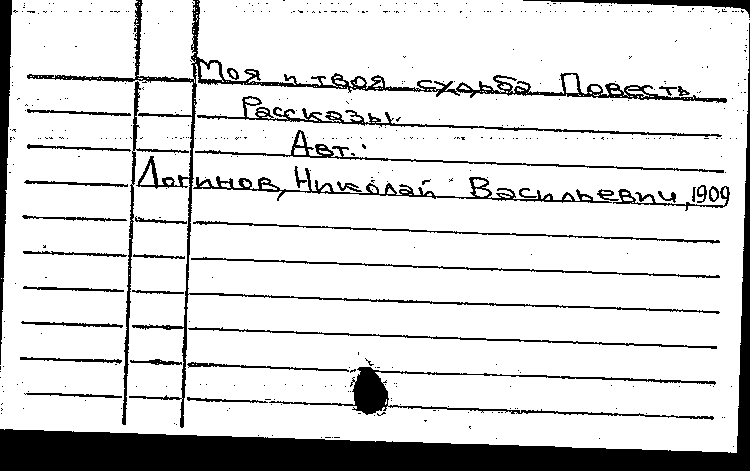 Моя и твоя судьба Повесть.
Рассказы.
Авт.:
Логинов, Николай Васильевич, 1909